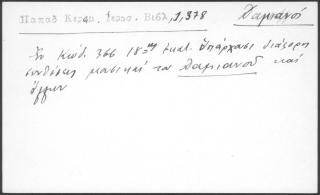 Παπαδ Κεραμ. Ιεροσ. Βιβλ, 1, 378
Δαμιανός
Ἐν Κώδ. 366 18ης ἑκατ. ὑπάρχουσι διάφοροι
συνθέσεις μουσικαί τοῦ Δαμιανοῦ καί
ἄλλων